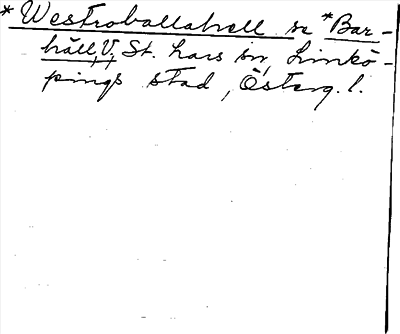 *Westraballahell se *Bar-
häll, V, St. Lars sn, Linkö-
pings stad, Österg. l.